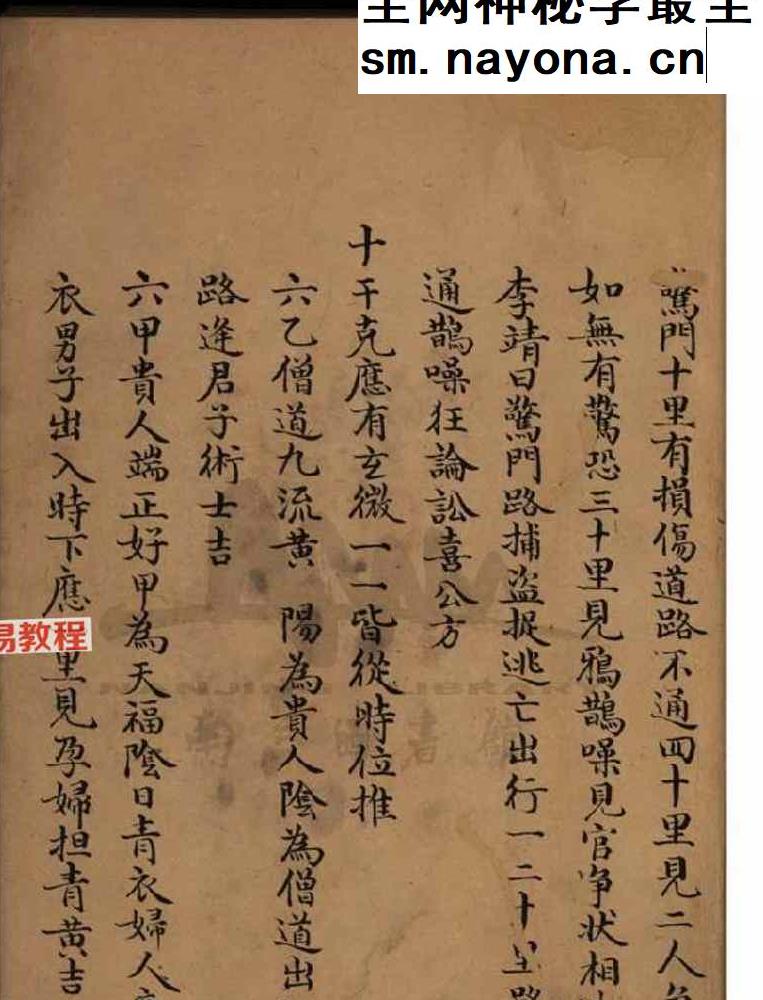 全网神秘学最全
sm.nayona.cn
驚門十里有損傷道路不通四十里見二人
如無有驚恐三十里見鴉鵲噪見官爭状相
李靖曰驚門路捕盗捉逃亡出行一二十里路
通鵲噪狂論訟喜公方
十干克應有玄微一一皆從時位推
六乙僧道九流黄 陽為貴人陰為僧道出
路逢君子術士吉
六甲貴人端正好甲為天福陰日青衣婦人
衣男子出入時下應 里見孕婦担青黄吉
易教程